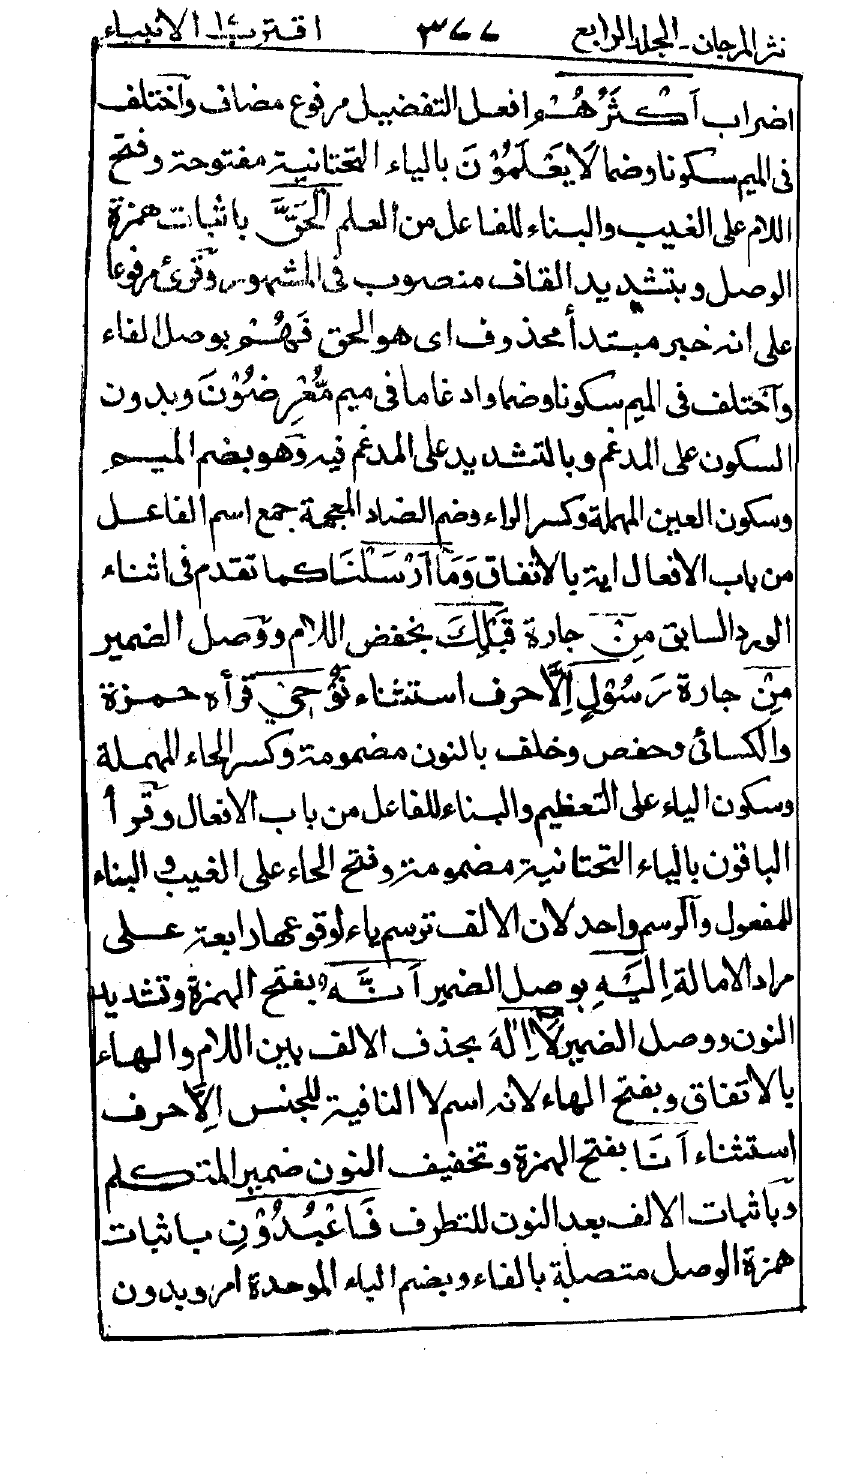 نثر المرجان۔ المجلد الرابع ٣٧٧ اقترب ١٧ الانبياء
اضراب اَكْثَرُهُمْ افعل التفضيل مرفوع مضاف واختلف
فى الميم سكونا وضما لَا يَعْلَمُوْنَ بالياء التحتانية مفتوحة وفتح
اللام على الغيب والبناء للفاعل من العلم الْحَقَّ باثبات همزة
الوصل وبتشديد القاف منصوب فى المشهور وقرئ مرفوعا
على انه خبر مبتدأ محذوف اى هو الحق فَهُمْ بوصل الفاء
واختلف فى الميم سكونا وضما وادغاما فى ميم مُّعْرِضُوْنَ وبدون
السكون على المدغم وبالتشديد على المدغم فيه وهو بضم الميم
وسكون العين المهملة وكسر الراء وضم الضاد المعجمة جمع اسم الفاعل
من باب الافعال اية بالاتفاق وَمَا اَرْسَلْنَا كما تقدم فى اثناء
الورد السابق مِنْ جارة قَبْلِكَ بخفض اللام ووصل الضمير
مِنْ جارة رَسُوْلٍ اِلَّا حرف استثناء نُوْحِىْ قرأه حمزة
والكسائى وحفص وخلف بالنون مضمومة وكسر الحاء المهملة
وسكون الياء على التعظيم والبناء للفاعل من باب الافعال وقرأ
الباقون بالياء التحتانية مضمومة وفتح الحاء على الغيب و البناء
للمفعول والرسم واحد لان الالف ترسم ياء لوقوعها رابعة على
مراد الامالة اِلَيْهِ بوصل الضمير اَنَّهٗ بفتح الهمزة وتشديد
النون ووصل الضمير لَا اِلٰهَ بحذف الالف بين اللام والهاء
بالاتفاق وبفتح الهاء لانه اسم لا النافية للجنس اِلَّا حرف
استثناء اَنَا بفتح الهمزة وتخفيف النون ضمير المتكلم
وباثبات الالف بعد النون للتطرف فَاعْبُدُوْنِ باثبات
همزة الوصل متصلة بالفاء وبضم الباء الموحدة امر وبدون